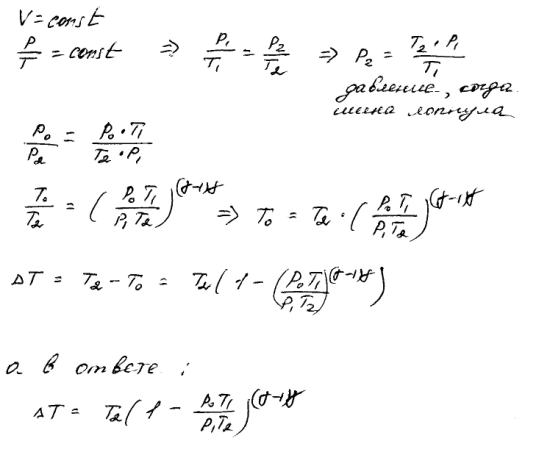 V = const
P/T = const ⇒ P₁/T₁ = P₂/T₂ ⇒ P₂ = T₂·P₁/T₁
давление, когда
шина лопнула
P₀/P₂ = P₀·T₁/T₂·P₁
T₀/T₂ = (P₀T₁/P₁T₂)^(γ-1)/γ ⇒ T₀ = T₂·(P₀T₁/P₁T₂)^(γ-1)/γ
ΔT = T₂ - T₀ = T₂(1 - (P₀T₁/P₁T₂)^(γ-1)/γ)
а в ответе :
ΔT = T₂(1 - P₀T₁/P₁T₂)^(γ-1)/γ